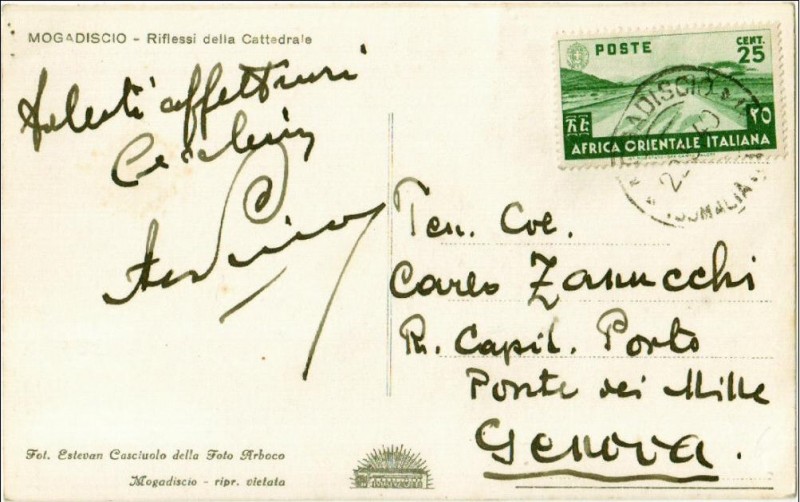 MOGADISCIO - Riflessi della Cattedrale
Saluti affettuosi
POSTE
CENT.
25
፳፭
٢٥
AFRICA ORIENTALE ITALIANA
MOGADISCIO
(SOMALIA)
Ten. Col.
Carlo Zanucchi
R. Capit. Porto
Ponte dei Mille
Genova.
Fot. Estevan Casciuolo della Foto Arboco
Mogadiscio - ripr. vietata